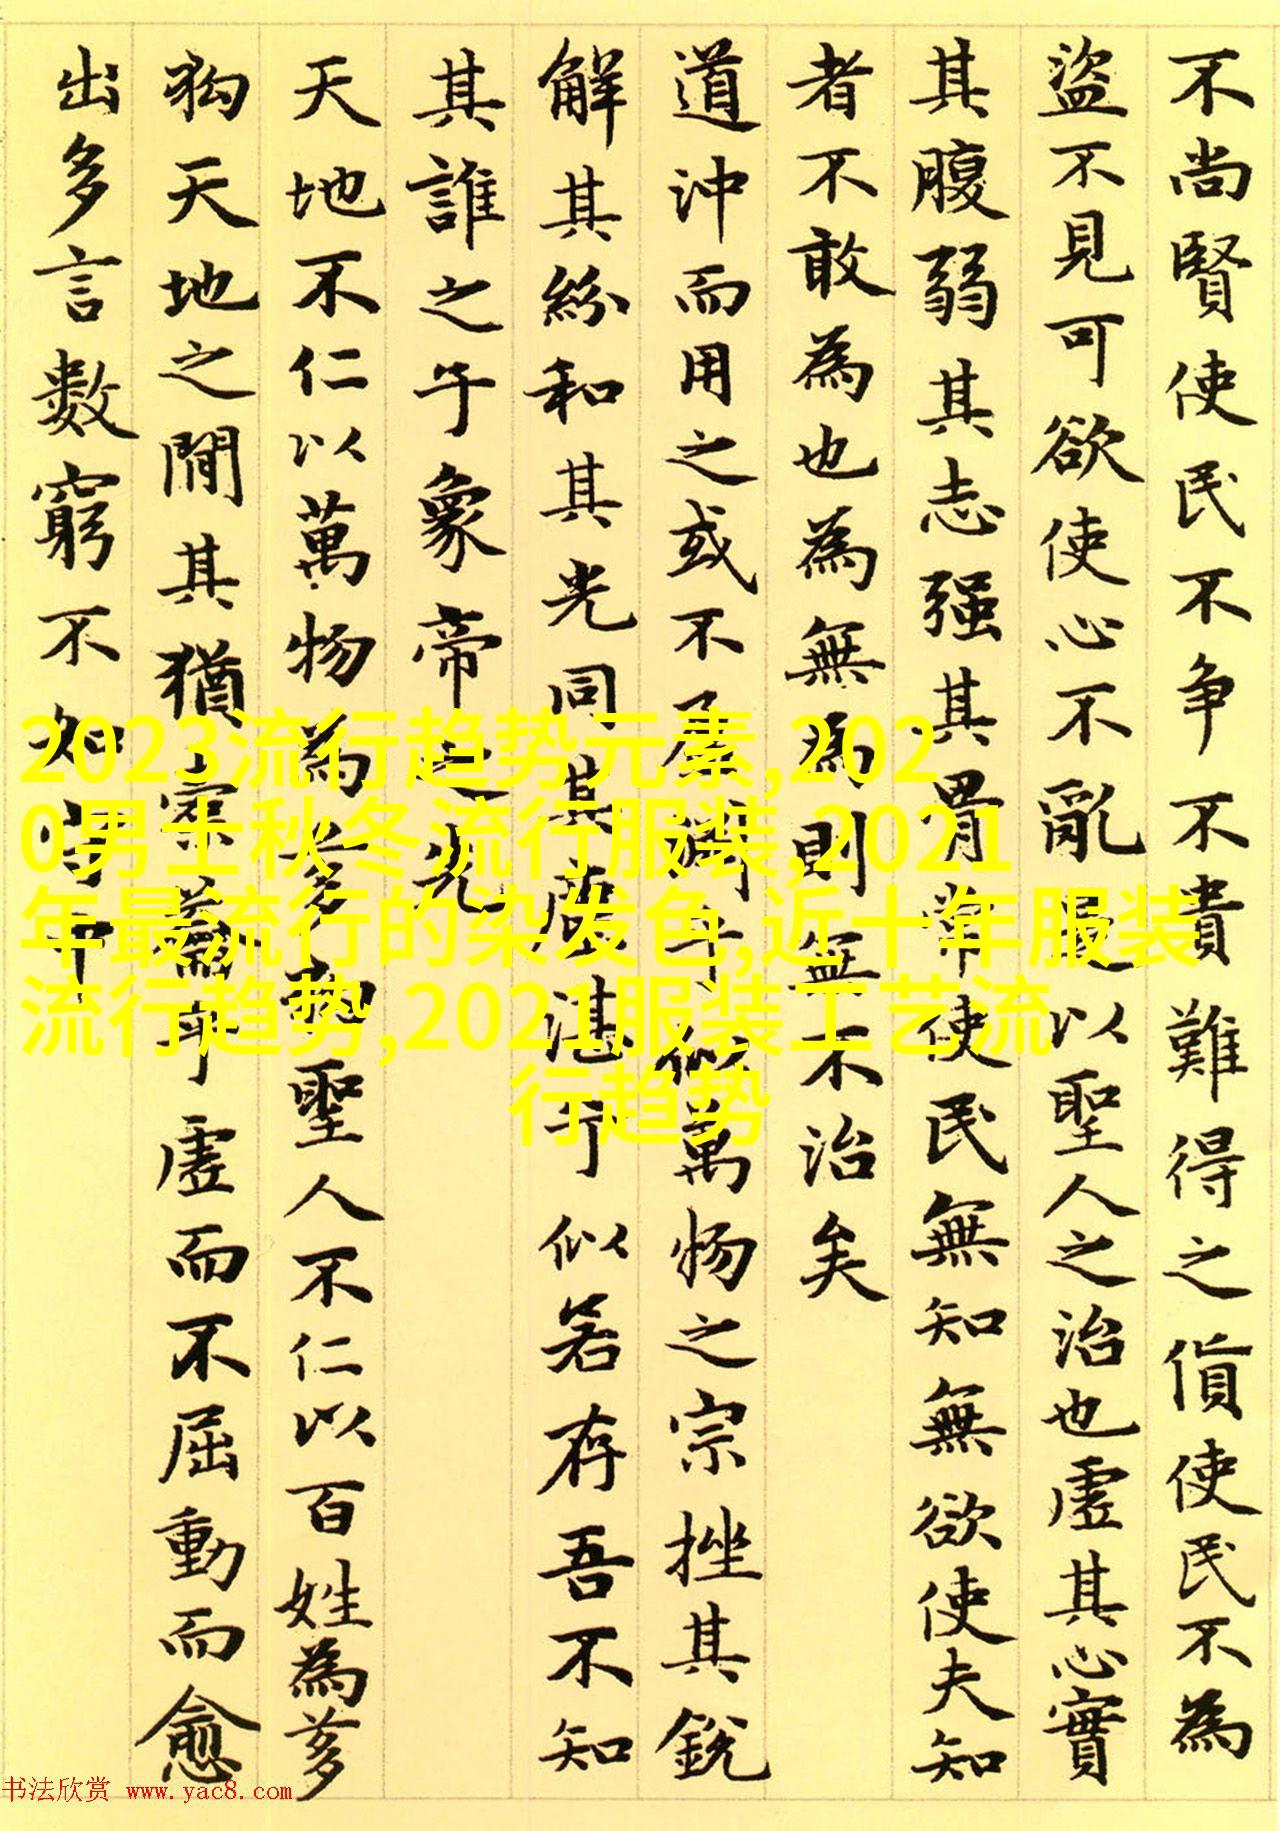 不尚賢使民不争不貴難得之貨使民不為
盜不見可欲使心不亂是以聖人之治也虛其心實
其腹弱其志强其骨常使民無知無欲使夫知
者不敢為也為無為則無不治矣
道沖而用之或不盈淵乎似萬物之宗挫其銳
解其紛和其光同其塵湛乎似若存吾不知
其誰之子象帝之先
天地不仁以萬物為芻狗聖人不仁以百姓為芻
狗天地之閒其猶橐籥乎虛而不屈動而愈
出多言數窮不如守中
2023流行趋势元素,202
0男士秋冬流行服装,2021
年最流行的染发色,近十年服装
流行趋势,2021服装工艺流
行趋势
书法欣赏 www.yac8.com